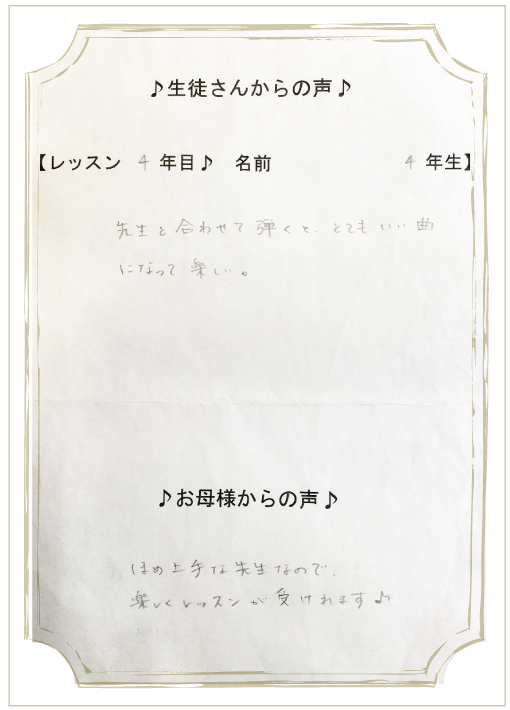 ♪生徒さんからの声♪
【レッスン 4 年目♪ 名前 4 年生】
先生と合わせて弾くと、とてもいい曲
になって楽しい。
♪お母様からの声♪
ほめ上手な先生なので、
楽しくレッスンが受けれます♪